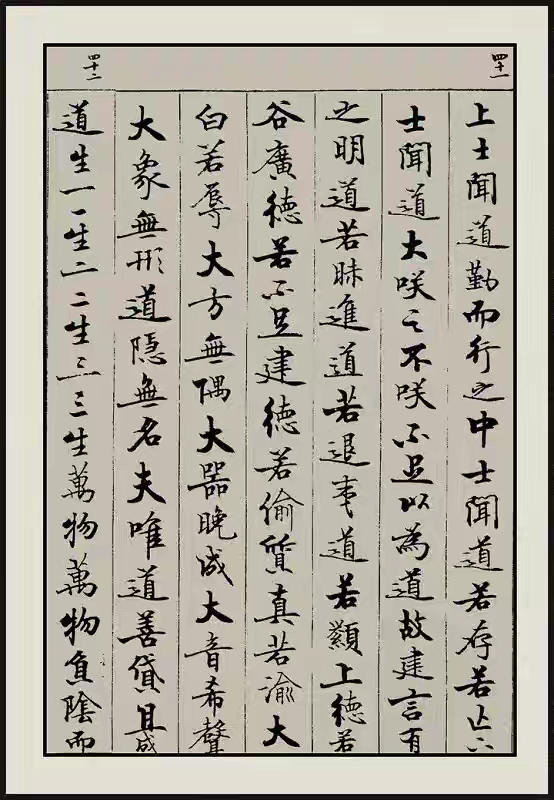 四十一
上士聞道勤而行之中士聞道若存若亡下
士聞道大咲之不咲不足以為道故建言有
之明道若昧進道若退夷道若纇上徳若
谷廣徳若不足建徳若偷質真若渝大
白若辱大方無隅大器晚成大音希聲
大象無形道隱無名夫唯道善貸且成
四十二
道生一一生二二生三三生萬物萬物負陰而